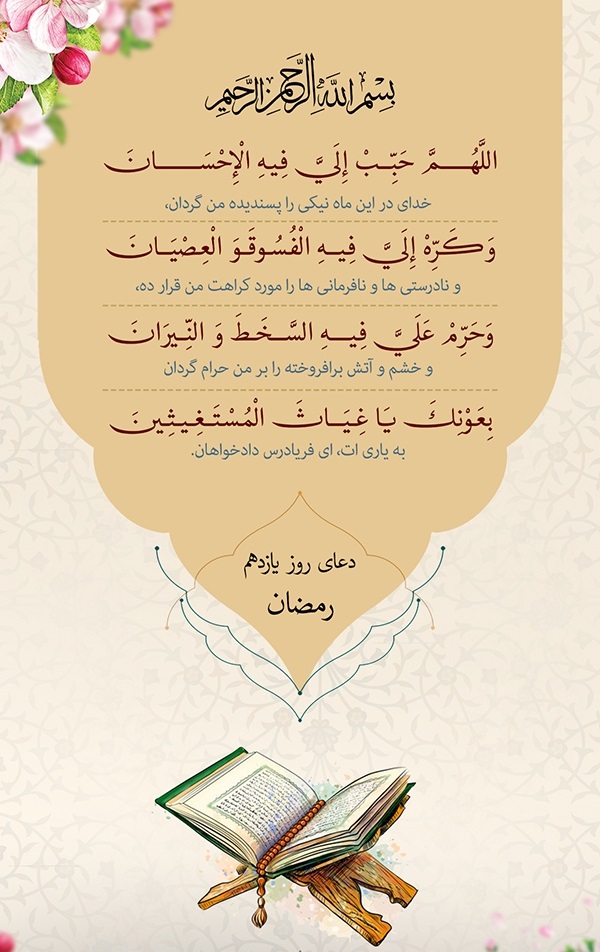 بِسْمِ اللَّهِ الرَّحْمنِ الرَّحِيمِ
اللَّهُمَّ حَبِّبْ إِلَيَّ فِيهِ الْإِحْسَانَ
خدای در این ماه نیکی را پسندیده من گردان،
وَكَرِّهْ إِلَيَّ فِيهِ الْفُسُوقَوَ الْعِصْيَانَ
و نادرستی ها و نافرمانی ها را مورد کراهت من قرار ده،
وَحَرِّمْ عَلَيَّ فِيهِ السَّخَطَ وَ النِّيرَانَ
و خشم و آتش برافروخته را بر من حرام گردان
بِعَوْنِكَ يَا غِيَاثَ الْمُسْتَغِيثِينَ
به یاری ات، ای فریادرس دادخواهان.
دعای روز یازدهم
رمضان